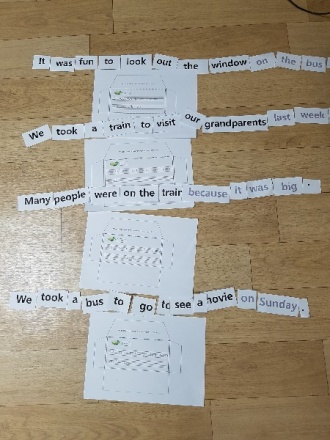 It was fun to look out the window on the bus
We took a train to visit our grandparents last week
Many people were on the train because it was big .
We took a bus to go to see a movie on Sunday .